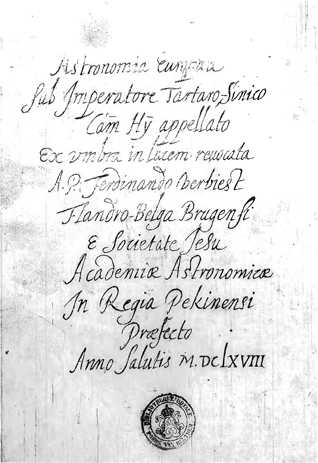 Astronomia Europæa
Sub Imperatore Tartaro-Sinico
Cám Hÿ appellato
Ex umbra in lucem revocata
A.P. Ferdinando Verbiest
Flandro-Belga Brugensi
E Societate Jesu
Academiæ Astronomicæ
In Regia Pekinensi
Præfecto
Anno Salutis M.DCLXVIII